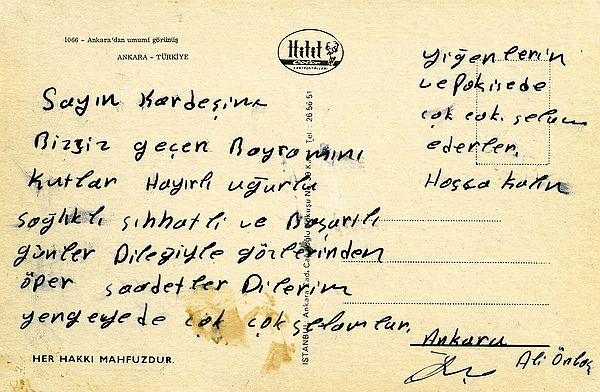 1066 - Ankara'dan umumi görünüş
ANKARA - TÜRKİYE
Sayın Kardeşim
Bizsiz geçen Bayramını
Kutlar Hayırlı uğurlu
sağlıklı sıhhatli ve Başarılı
günler Dileğiyle gözlerinden
öper saadetler Dilerim
yengeyede çok çok selamlar.
HER HAKKI MAHFUZDUR.
yiğenlerin
çok çok selam
ederler.
Hoşça kalın
Ankara
Ali
İSTANBUL, Ankara Cad.
Tel. 26 56 51